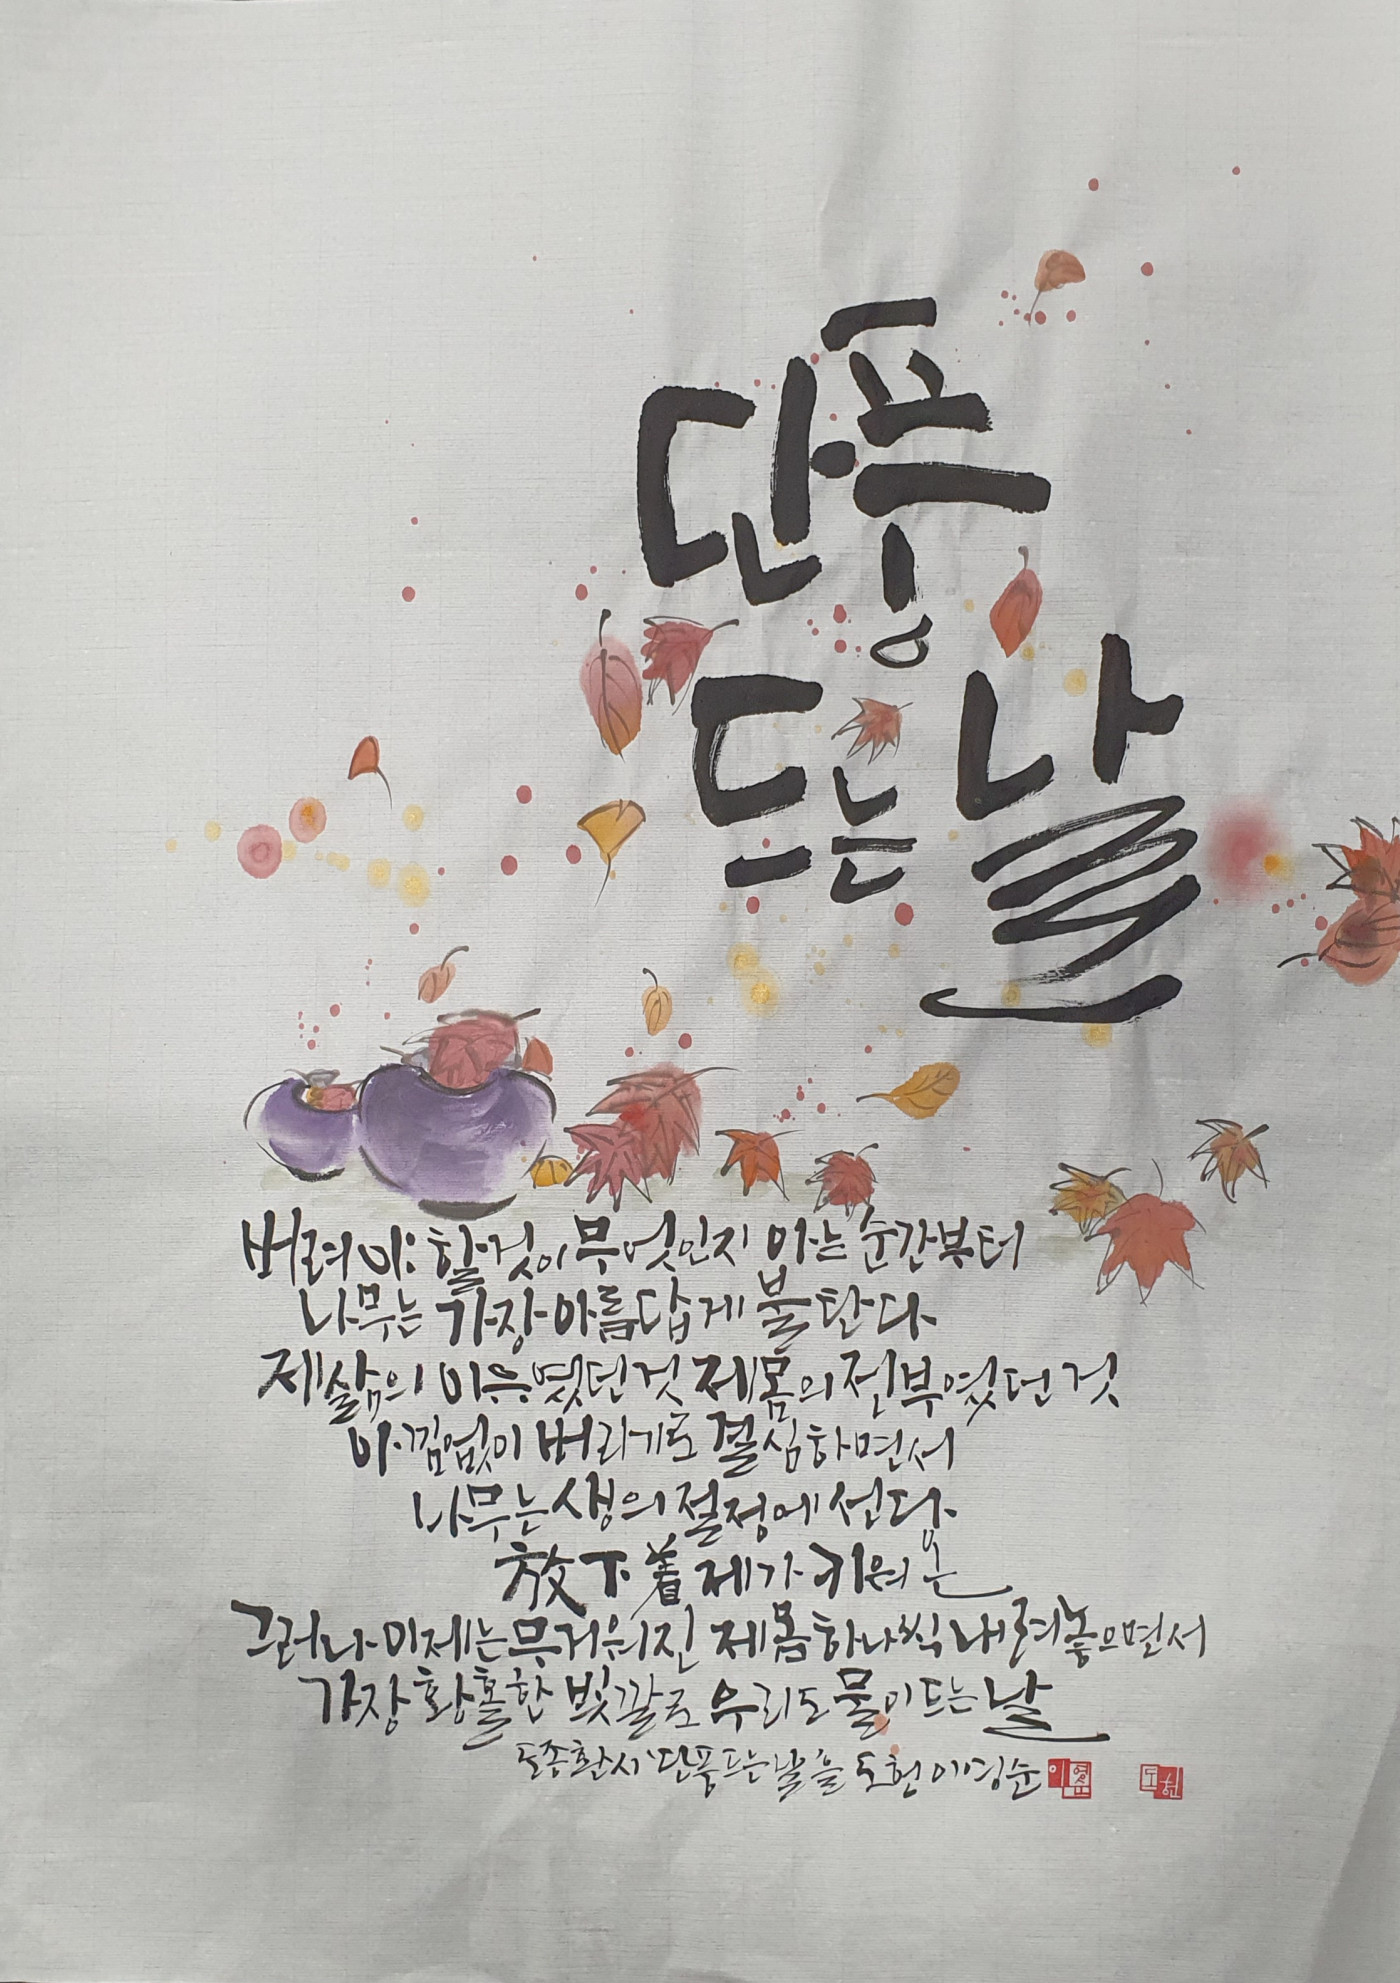 단풍
드는 날
버려야 할 것이 무엇인지 아는 순간부터
나무는 가장 아름답게 불탄다
제 삶의 이유였던 것 제 몸의 전부였던 것
아낌없이 버리기로 결심하면서
나무는 생의 절정에 선다
放下着 제가 키워 온
그러나 이제는 무거워진 제 몸 하나씩 내려놓으면서
가장 황홀한 빛깔로 우리도 물이 드는 날
도종환 시 '단풍 드는 날'을 도헌 이영순